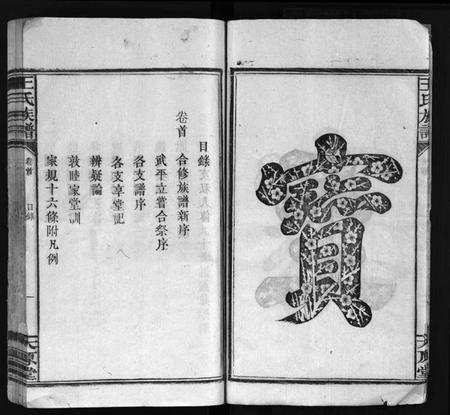 賓
目錄
卷首 合修族譜新序
武平立嘗合祭序
各支譜序
各支享堂記
辨疑論
敦睦家堂訓
家規十六條附凡例
王氏族譜
卷首
目錄
一
太原堂
王氏族譜
太原堂